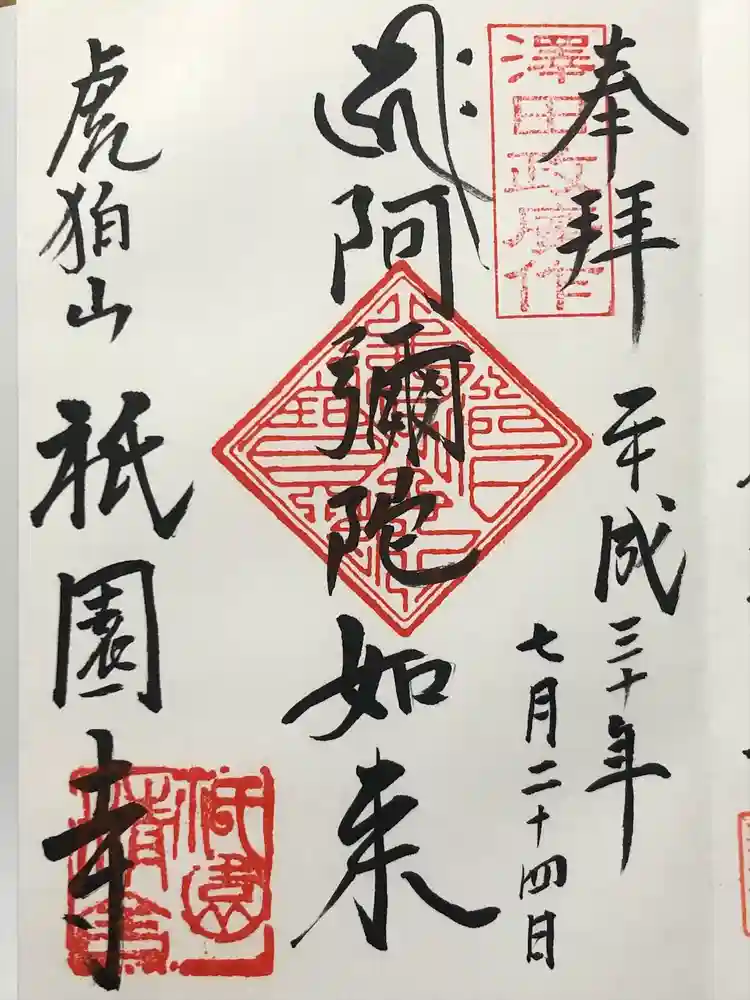 奉拝
澤田政廣作
平成三十年
七月二十四日
阿彌陀如来
虎狛山
祇園寺